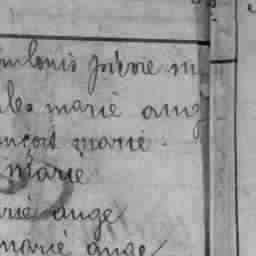 louis pierre m
les marie ang
ncois marie
marie
rie ange
marie ange